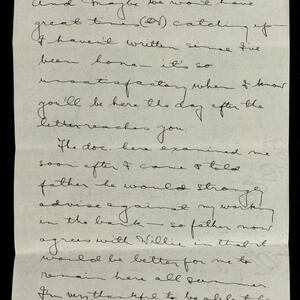 And maybe we won't have
great times (OV) catching up
I haven't written since I've
been home - it's so
unsatisfactory when I know
you'll be here the day after the
letter reaches you.
The doc. here examined me
soon after I came & told
father he would strongly
advise against my working
in the bank - so father now
agrees with Willie in that it
would be better for me to
remain here all summer
I'm very thankful to be able to